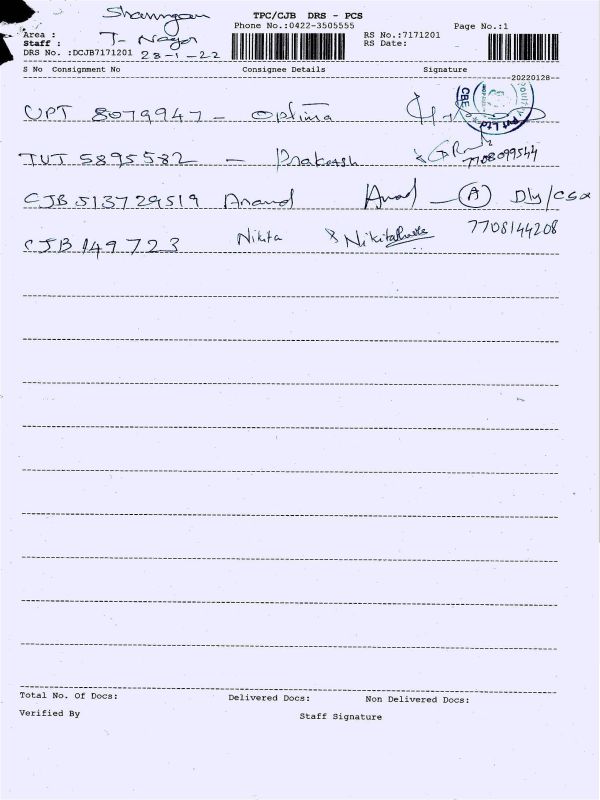 TPC/CJB DRS - PCS
Phone No.:0422-3505555 Page No.:1
Area : RS No.:7171201
Staff : T- Nagar RS Date:
DRS No. :DCJB7171201 28-1-22
S No Consignment No Consignee Details Signature
20220128
8079947 - optima
TUT 5895582 - Prakash 7708099544
CJB 513729519 Anand Anad - A Dly/
CJB 149723 Nikita Nikita 7708144208
Total No. Of Docs: Delivered Docs: Non Delivered Docs:
Verified By Staff Signature